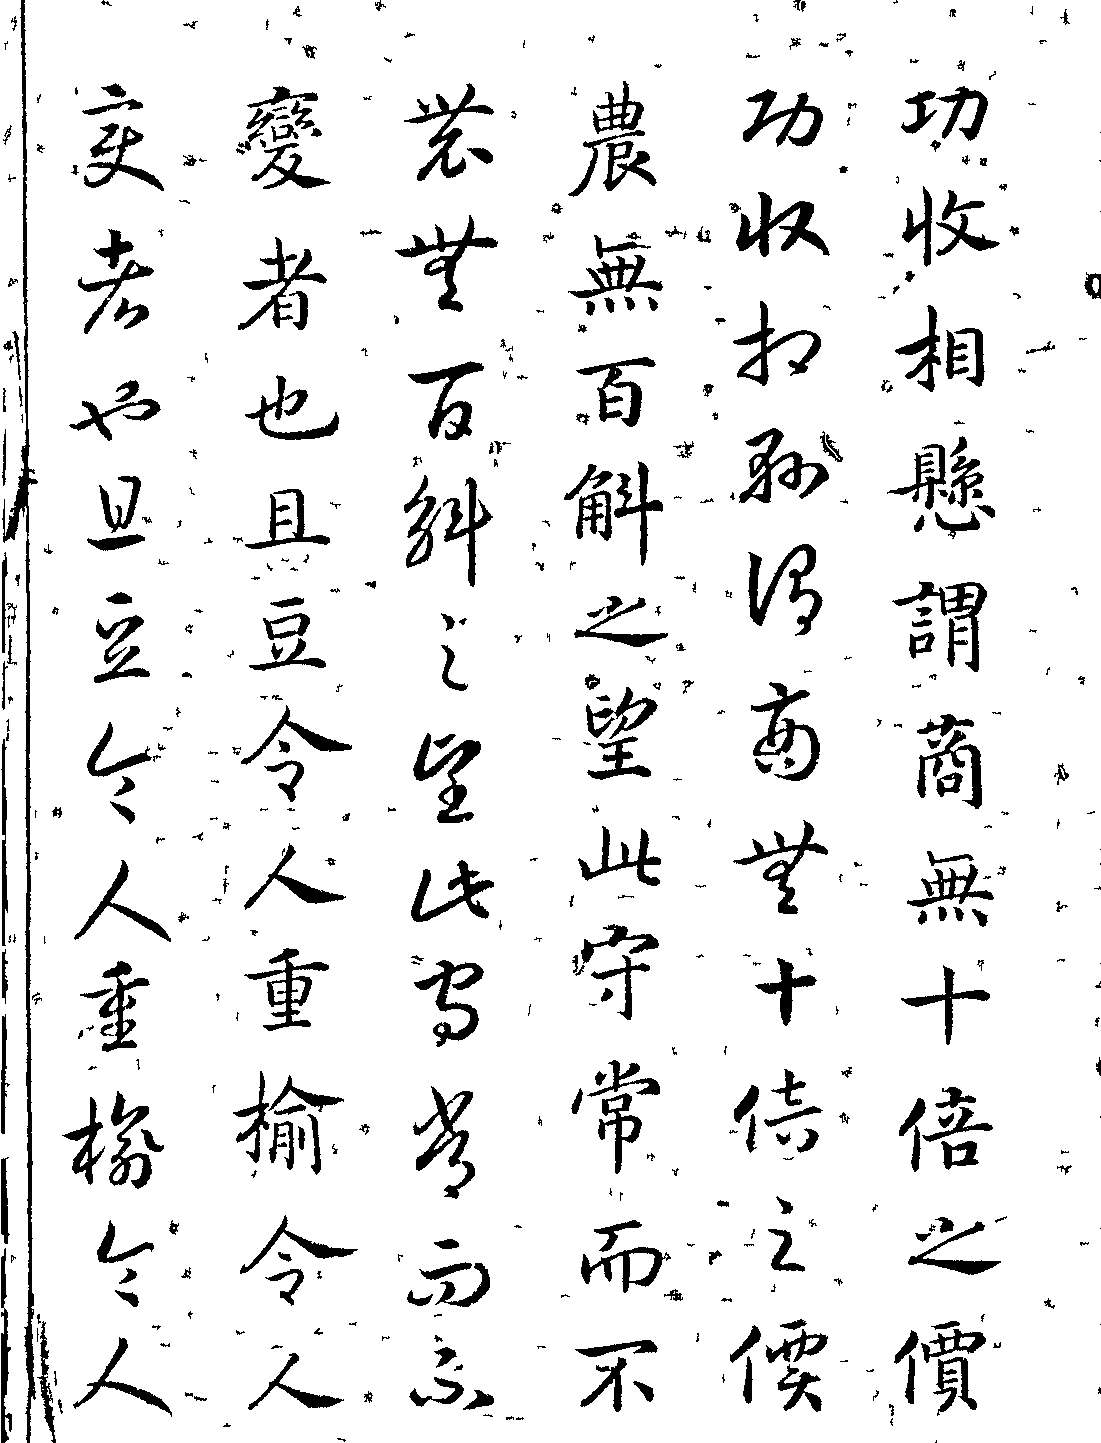 功收相懸謂商無十倍之價
功收相懸謂商無十倍之價
農無百斛之望此守常而不
農無百斛之望此守常而不
變者也且豆令人重榆令人
變者也且豆令人重榆令人